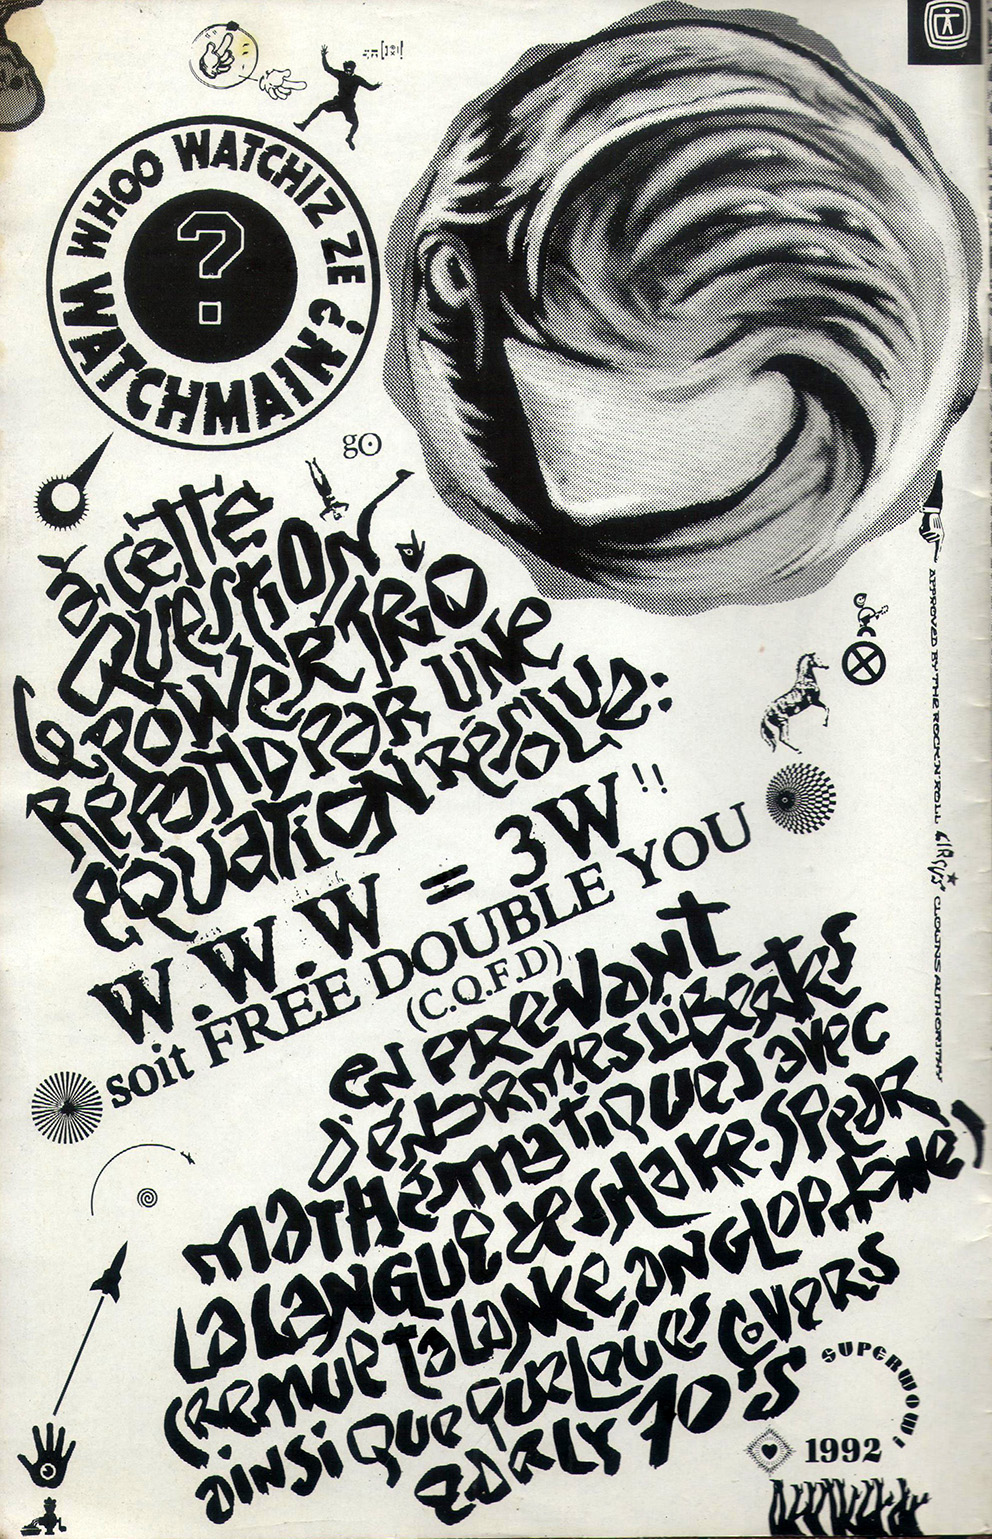 WHOO WATCHIZ ZE
WATCHMAIN?
?
go
à cette
question
le power trio
répond par une
équation résolue:
W.W.W = 3W!!
soit FREE DOUBLE YOU
(C.Q.F.D)
en prenant
d'énormes libertés
mathématiques avec
la langue de shake-spear
(remue ta lanke, anglophone)
ainsi que quelques covers
early 70's
APPROVED BY THE ROCK'N ROLL CIRCUS CLOWNS AUTHORITHY
SUPERWOW!
1992